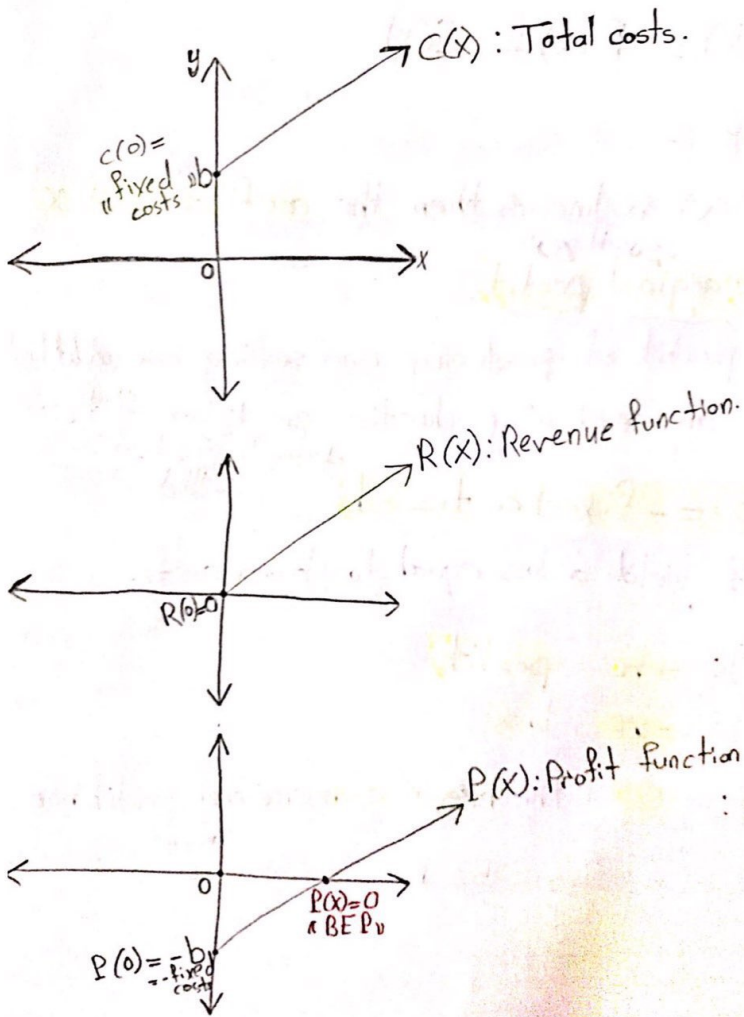 y
C(X) : Total costs.
C(0) =
"fixed costs" b
0
x
R(X): Revenue function.
R(0)=0
P(X): Profit function
:
0
P(X)=0
"BEP"
P(0) = -b
= -fixed
costs